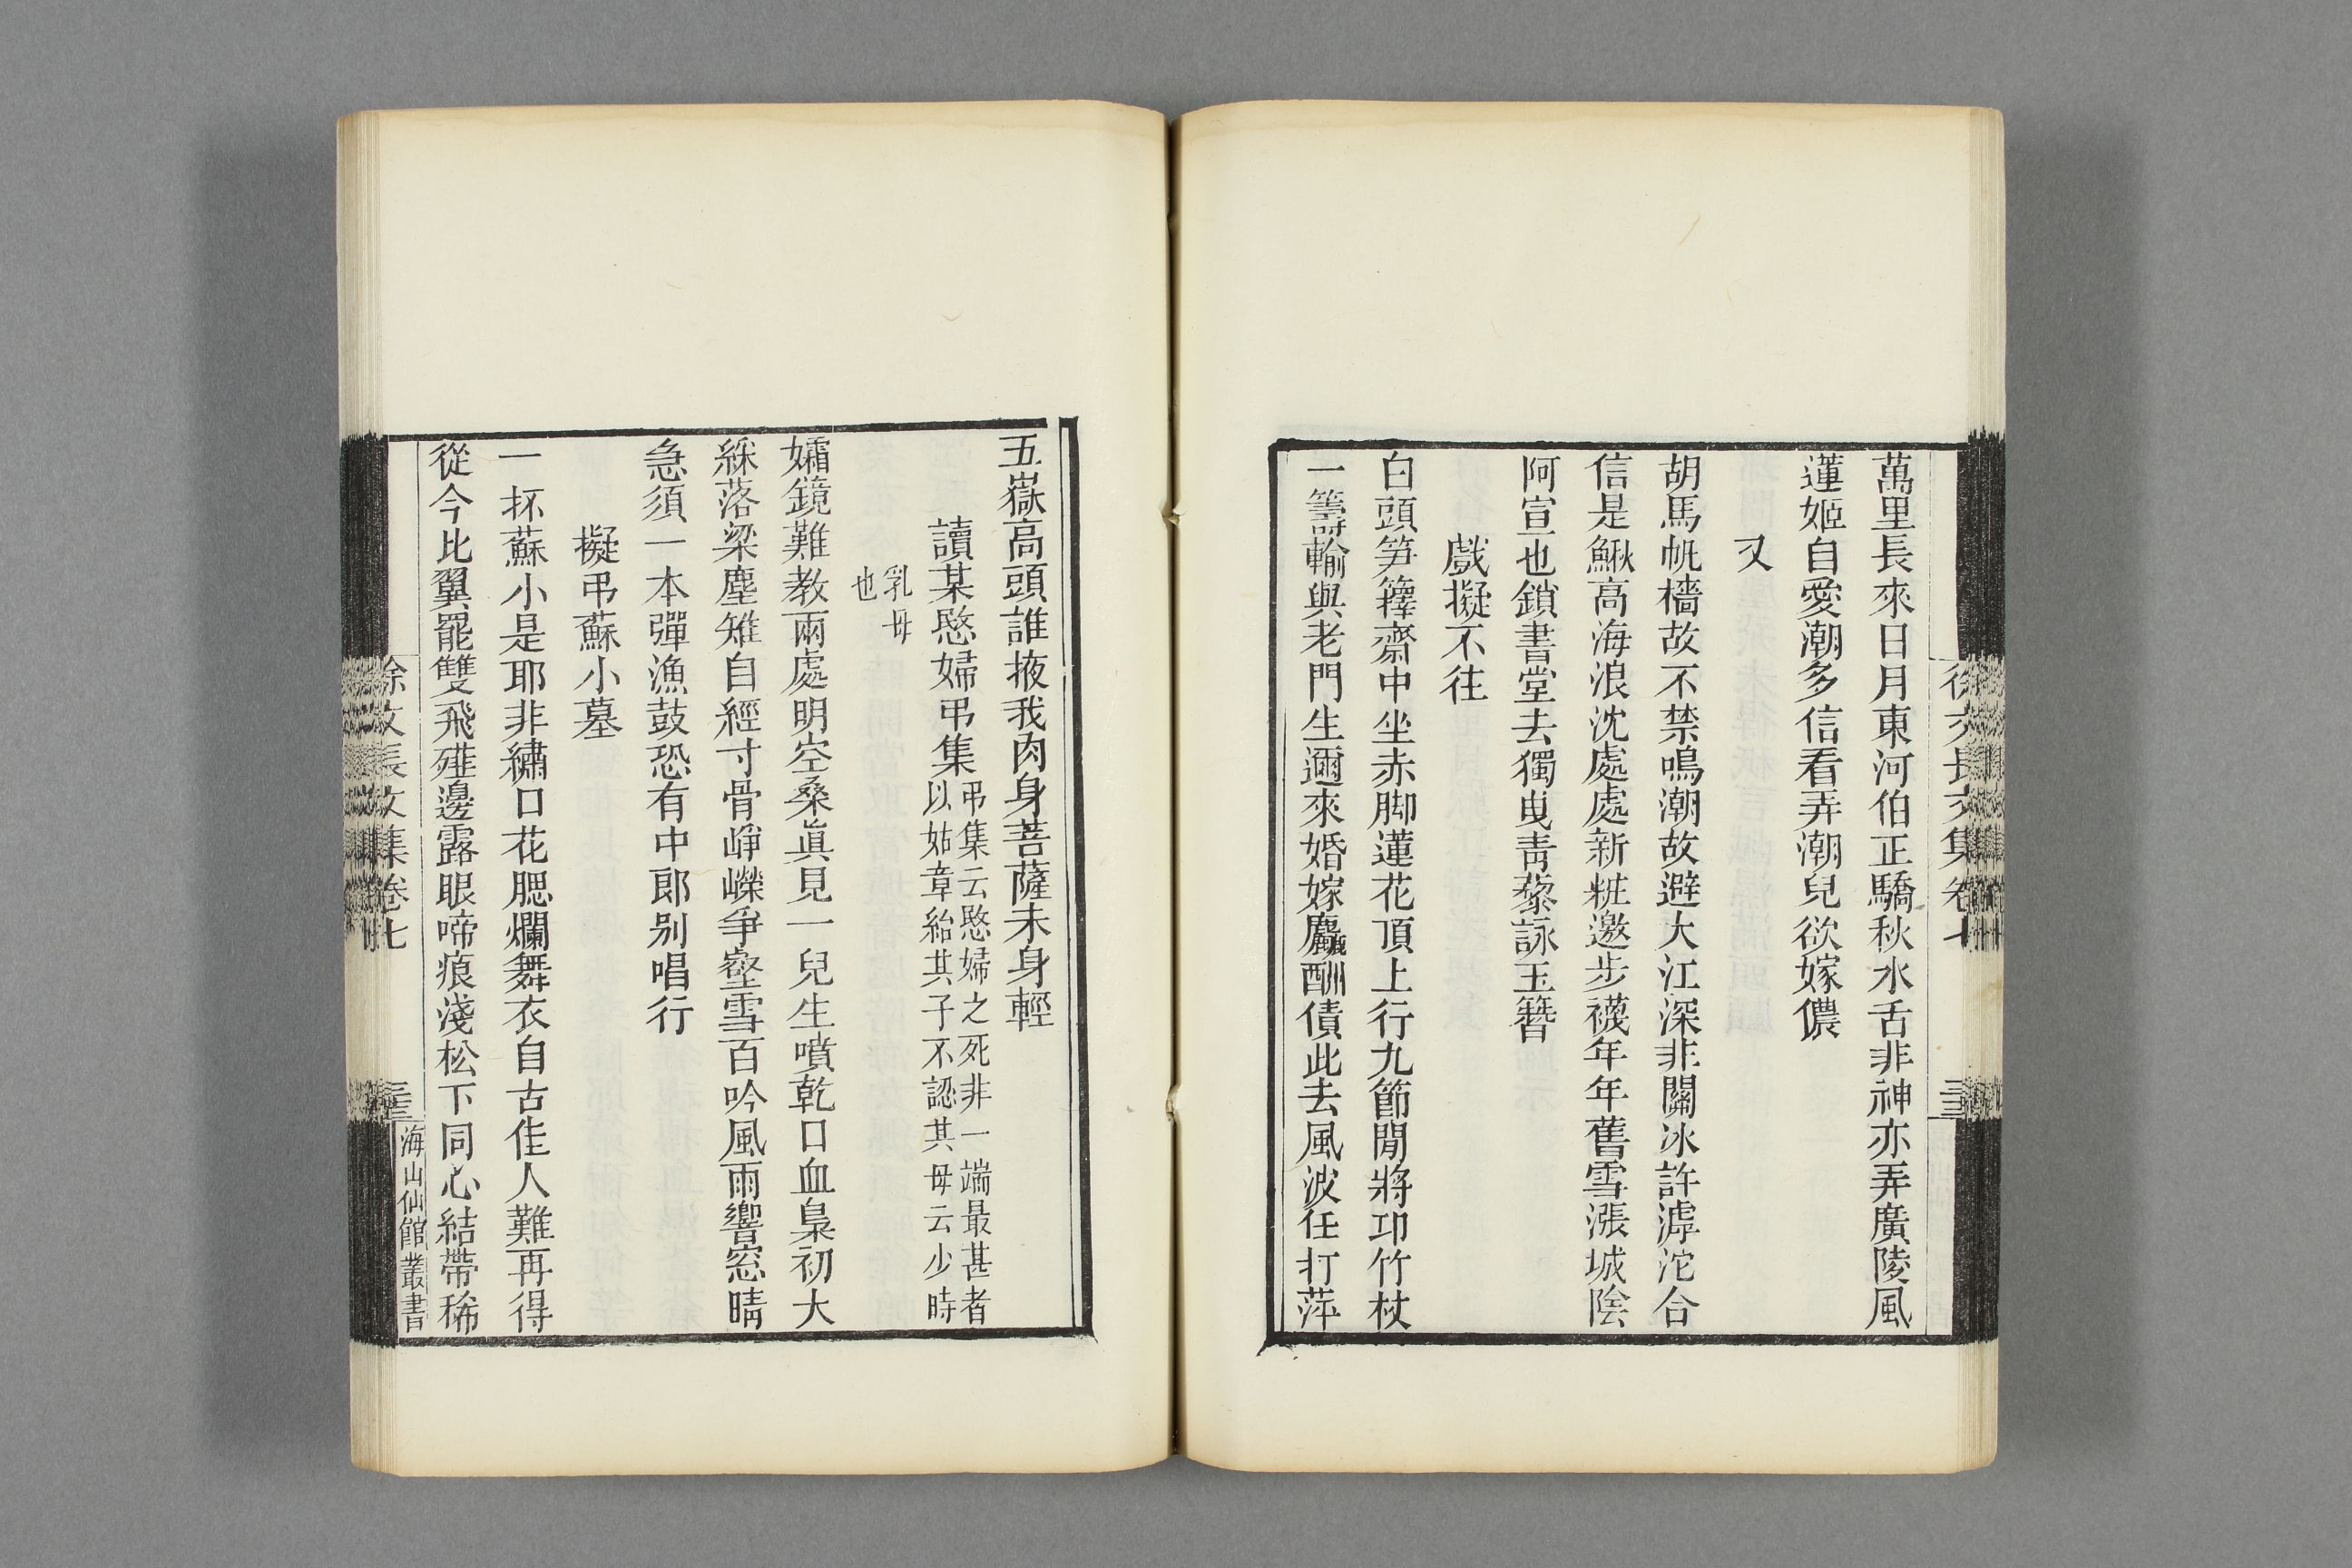 萬里長來日月東河伯正驕秋水舌非神亦弄廣陵風
蓮姬自愛潮多信看弄潮兒欲嫁儂
又
胡馬帆檣故不禁鳴潮故避大江深非關冰許滹沱合
信是鰍高海浪沈處處新粧邀步襪年年舊雪漲城陰
阿宣也鎖書堂去獨曳靑藜詠玉簪
戲擬不往
白頭笋籜齋中坐赤脚蓮花頂上行九節閒將卭竹杖
一籌輸與老門生邇來婚嫁麤酬債此去風波任打萍
徐文長文集卷七
三三
五嶽高頭誰掖我肉身菩薩未身輕
讀某愍婦弔集弔集云愍婦之死非一端最甚者
以姑章紿其子不認其母云少時
乳母
也
孀鏡難教兩處明空桑眞見一兒生噴乾口血梟初大
綵落梁塵雉自經寸骨崢嶸爭壑雪百吟風雨響窓晴
急須一本彈漁鼓恐有中郎別唱行
擬弔蘇小墓
一抔蘇小是耶非繡口花腮爛舞衣自古佳人難再得
從今比翼罷雙飛薤邊露眼啼痕淺松下同心結帶稀
徐文長文集卷七
三三
海山仙館叢書